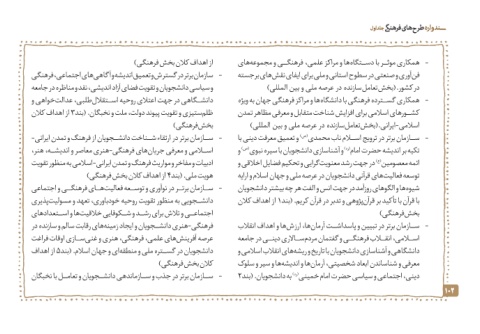 سند واره طرح‌های فرهنگی جلد اول
- همکاری موثر با دستگاه‌ها و مراکز علمی، فرهنگی و مجموعه‌های
فن‌آوری و صنعتی در سطوح استانی و ملی برای ایفای نقش‌های برجسته
در کشور. (بخش تعامل سازنده در عرصه ملی و بین المللی)
- همکاری گسترده فرهنگی با دانشگاه‌ها و مراکز فرهنگی جهان به ویژه
کشورهای اسلامی برای افزایش شناخت متقابل و معرفی مظاهر تمدن
اسلامی-ایرانی. (بخش تعامل سازنده در عرصه ملی و بین المللی)
- سازمان برتر در ترویج اسلام ناب محمدی (ص) و تعمیق معرفت دینی با
تکیه بر اندیشه حضرت امام (ره) و آشناسازی دانشجویان با سیره نبوی (ص) و
ائمه معصومین (ع) در جهت رشد معنویت‌گرایی و تحکیم فضایل اخلاقی و
توسعه فعالیت‌های قرآنی دانشجویان در عرصه ملی و جهان اسلام و ارایه
شیوه‌ها و الگوهای روزآمد در جهت انس و الفت هر چه بیشتر دانشجویان
با قرآن با تأکید بر قرآن‌پژوهی و تدبر در قرآن کریم. (بند۱ از اهداف کلان
بخش فرهنگی)
- سازمان برتر در تبیین و پاسداشت آرمان‌ها، ارزش‌ها و اهداف انقلاب
اسلامی، انقلاب فرهنگی و گفتمان مردم‌سالاری دینی در جامعه
دانشگاهی و آشناسازی دانشجویان با تاریخ و ریشه‌های انقلاب اسلامی و
معرفی و شناساندن ابعاد شخصیتی، آرمان‌ها و اندیشه‌ها و سیر و سلوک
دینی، اجتماعی و سیاسی حضرت امام خمینی (ره) به دانشجویان. (بند۲
از اهداف کلان بخش فرهنگی)
- سازمان برتر در گسترش و تعمیق اندیشه و آگاهی‌های اجتماعی، فرهنگی
و سیاسی دانشجویان و تقویت فضای آزاد اندیشی، نقد و مناظره در جامعه
دانشگاهی در جهت اعتلای روحیه استقلال‌طلبی، عدالت‌خواهی و
ظلم‌ستیزی و تقویت پیوند دولت، ملت و نخبگان. (بند۳ از اهداف کلان
بخش فرهنگی)
- سازمان برتر در ارتقاء شناخت دانشجویان از فرهنگ و تمدن ایرانی-
اسلامی و معرفی جریان‌های فرهنگی-هنری معاصر و اندیشه، هنر،
ادبیات و مفاخر و مواریث فرهنگ و تمدن ایرانی-اسلامی به منظور تقویت
هویت ملی. (بند۴ از اهداف کلان بخش فرهنگی)
- سازمان برتر در نوآوری و توسعه فعالیت‌های فرهنگی و اجتماعی
دانشجویی به منظور تقویت روحیه خودباوری، تعهد و مسولیت‌پذیری
اجتماعی و تلاش برای رشد و شکوفایی خلاقیت‌ها و استعدادهای
فرهنگی-هنری دانشجویان و ایجاد زمینه‌های رقابت سالم و سازنده در
عرصه آفرینش‌های علمی، فرهنگی، هنری و غنی‌سازی اوقات فراغت
دانشجویان در گستره ملی و منطقه‌ای و جهان اسلام. (بند۵ از اهداف
کلان بخش فرهنگی)
- سازمان برتر در جذب و سازماندهی دانشجویان و تعامل با نخبگان
۱۰۲